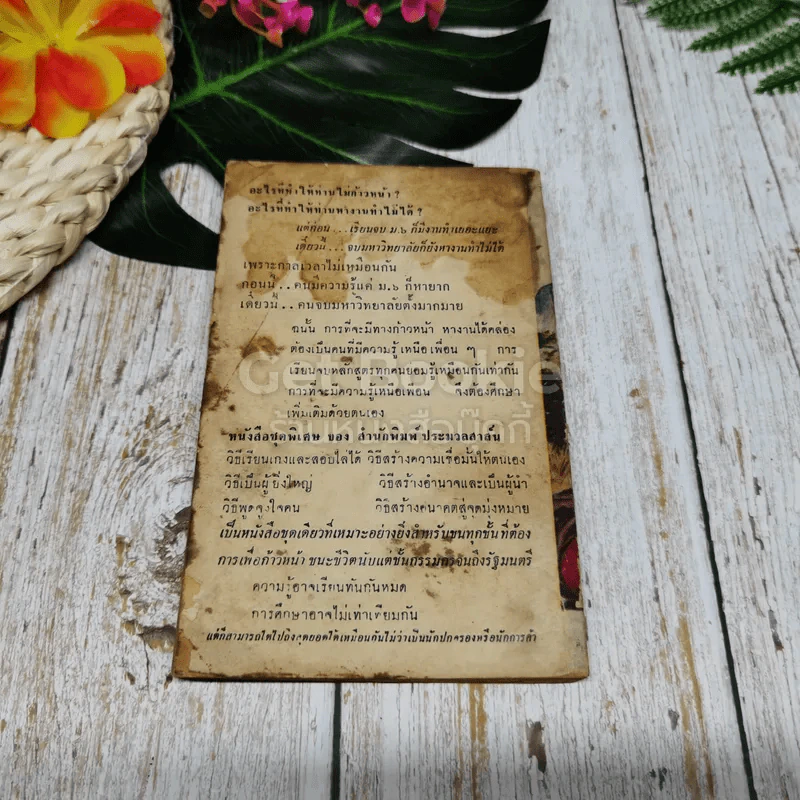 อะไรที่ทำให้ท่านไม่ก้าวหน้า ?
อะไรที่ทำให้ท่านหางานทำไม่ได้ ?
แต่ก่อน . . . เรียนจบ ม.๖ ก็มีงานทำเยอะแยะ
เดี๋ยวนี้ . . . จบมหาวิทยาลัยก็ยังหางานทำไม่ได้
เพราะกาลเวลาไม่เหมือนกัน
ก่อนนี้ . . คนมีความรู้แค่ ม.๖ ก็หายาก
เดี๋ยวนี้ . . คนจบมหาวิทยาลัยตั้งมากมาย
ฉนั้น การที่จะมีทางก้าวหน้า หางานได้คล่อง
ต้องเป็นคนที่มีความรู้เหนือเพื่อน ๆ การ
เรียนจบหลักสูตรทุกคนย่อมรู้เหมือนกันเท่ากัน
การที่จะมีความรู้เหนือเพื่อน จึงต้องศึกษา
เพิ่มเติมด้วยตนเอง
Get Bookie
ร้านหนังสือบุ๊คกี้
หนังสือชุดพิเศษ ของ สำนักพิมพ์ ประมวลสาส์น
วิธีเรียนเก่งและสอบไล่ได้ วิธีสร้างความเชื่อมั่นให้ตนเอง
วิธีเป็นผู้ยิ่งใหญ่ วิธีสร้างอำนาจและเป็นผู้นำ
วิธีพูดจูงใจคน วิธีสร้างอนาคตสู่จุดมุ่งหมาย
เป็นหนังสือชุดเดียวที่เหมาะอย่างยิ่งสำหรับชนทุกชั้นที่ต้อง
การเพื่อก้าวหน้า ชนะชีวิตนับแต่ชั้นกรรมกรจนถึงรัฐมนตรี
ความรู้อาจเรียนทันกันหมด
การศึกษาอาจไม่เท่าเทียมกัน
แต่ก็สามารถไต่ไปถึงสุดยอดได้เหมือนกันไม่ว่าเป็นนักปกครองหรือนักการค้า